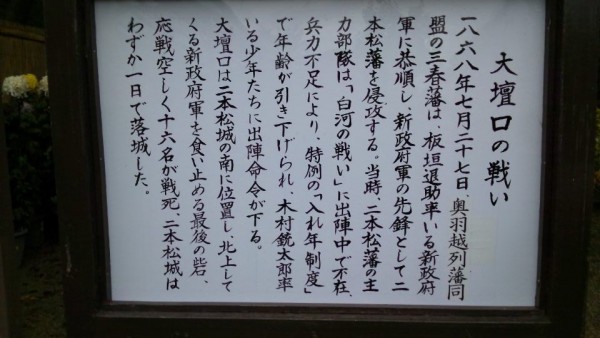 大壇口の戦い
一八六八年七月二十七日、奥羽越列藩同
盟の三春藩は、板垣退助率いる新政府
軍に恭順し、新政府軍の先鋒として二
本松藩を侵攻する。当時、二本松藩の主
力部隊は「白河の戦い」に出陣中で不在、
兵力不足により、特例の「入れ年制度」
で年齢が引き下げられ、木村銃太郎率
いる少年たちに出陣命令が下る。
大壇口は二本松城の南に位置し、北上して
くる新政府軍を食い止める最後の砦、
応戦空しく十六名が戦死、二本松城は
わずか一日で落城した。